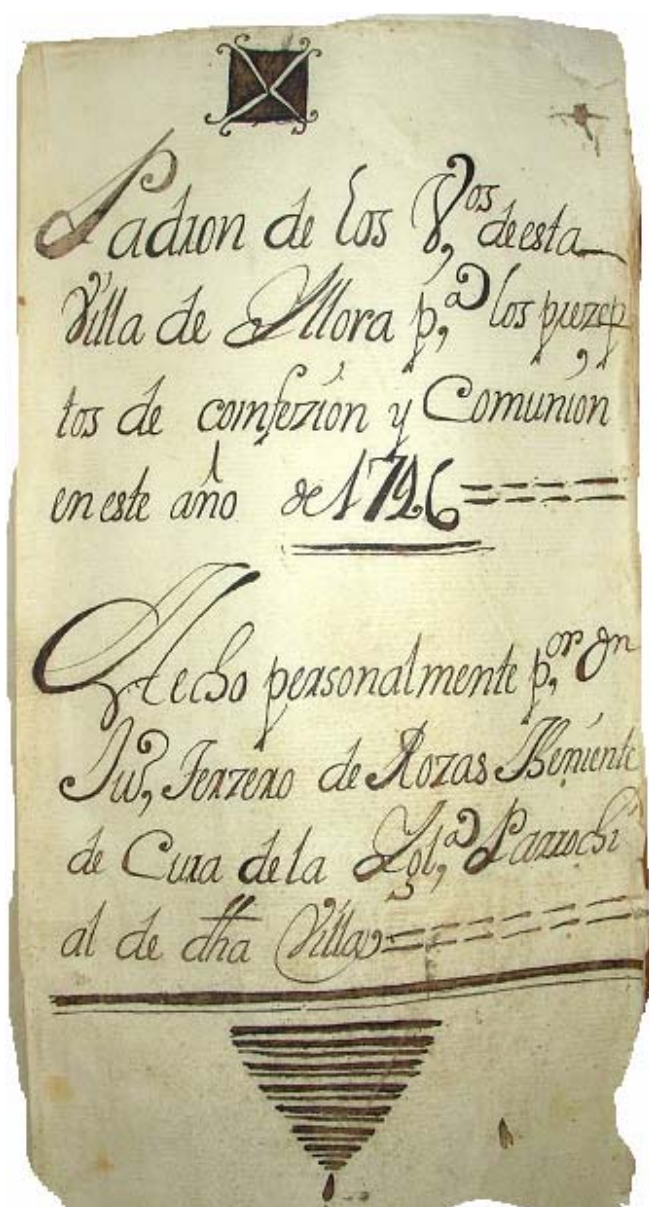 Padron de los V,os de esta
Villa de Yllora p,a los prezep
tos de comfezión y Comunión
en este año de 1726
Hecho personalmente p,or Dn
Ju, Ferzero de Rozas Theniente
de Cura de la Ygl,a Parrochi
al de dha Villa